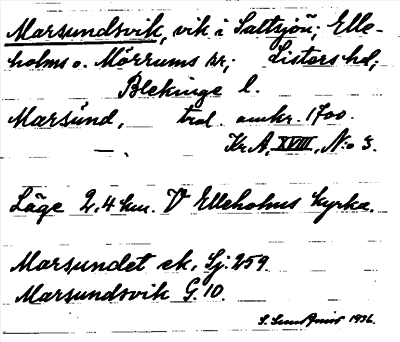 Marsundsvik, vik i Saltsjön; Elle-
holms o. Mörrums sn; Listers hd;
Blekinge l.
Marsund, trol. omkr. 1700.
—, Kr.A, XVIII, N:o 3.
Läge 2,4 km. V Elleholms kyrka.
Marsundet ek. Sj. 259.
Marsundsvik G. 10.
S. 1936.